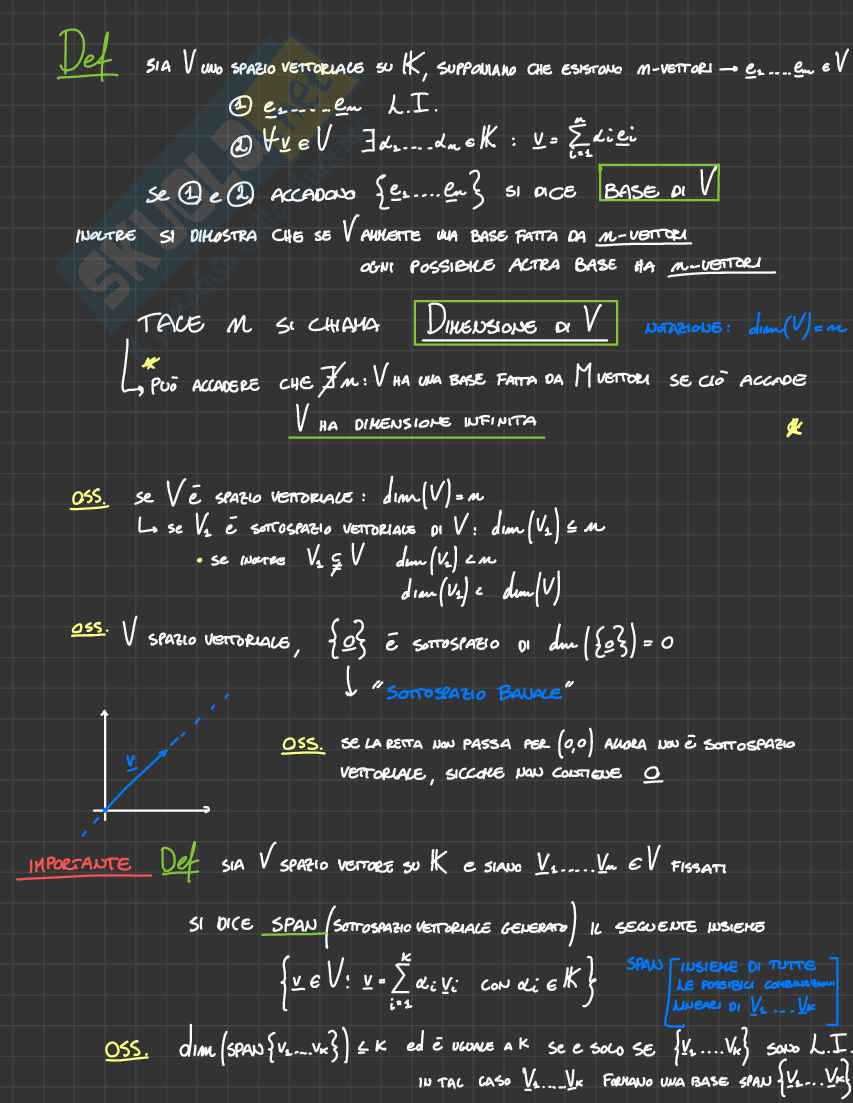 Def SIA V UNO SPAZIO VETTORIALE SU 𝕂, SUPPONIAMO CHE ESISTONO n-VETTORI → e₁....eₙ ∈ V
① e₁......eₙ L.I.
② ∀v ∈ V ∃α₁.....αₙ ∈ 𝕂 : v = Σᵢ₌₁ⁿ αᵢeᵢ
SE ① E ② ACCADONO {e₁....eₙ} SI DICE BASE DI V
INOLTRE SI DIMOSTRA CHE SE V AMMETTE UNA BASE FATTA DA n-VETTORI
OGNI POSSIBILE ALTRA BASE HA n-VETTORI
TALE n SI CHIAMA DIMENSIONE DI V NOTAZIONE: dim(V)=n
* PUÒ ACCADERE CHE ∄n: V HA UNA BASE FATTA DA M VETTORI SE CIÒ ACCADE
V HA DIMENSIONE INFINITA *
OSS. SE V È SPAZIO VETTORIALE: dim(V)=n
↳ SE V₁ È SOTTOSPAZIO VETTORIALE DI V: dim(V₁) ≤ n
• SE INOLTRE V₁ ⊊ V dim(V₁) < n
dim(V₁) < dim(V)
OSS. V SPAZIO VETTORIALE, {0} È SOTTOSPAZIO DI dim({0}) = 0
↓ "SOTTOSPAZIO BANALE"
v
OSS. SE LA RETTA NON PASSA PER (0,0) ALLORA NON È SOTTOSPAZIO
VETTORIALE, SICCOME NON CONTIENE 0
IMPORTANTE Def SIA V SPAZIO VETTORE SU 𝕂 E SIANO V₁.....Vₙ ∈ V FISSATI
SI DICE SPAN (SOTTOSPAZIO VETTORIALE GENERATO) IL SEGUENTE INSIEME
{v ∈ V: v = Σᵢ₌₁ᴷ αᵢvᵢ CON αᵢ ∈ 𝕂}
SPAN [INSIEME DI TUTTE
LE POSSIBILI COMBINAZIONI
LINEARI DI V₁...Vₖ]
OSS. dim(SPAN{V₁....Vₖ}) ≤ K ED È UGUALE A K SE E SOLO SE {V₁....Vₖ} SONO L.I.
IN TAL CASO V₁....Vₖ FORMANO UNA BASE SPAN{V₁...Vₖ}
SKUOLA.net